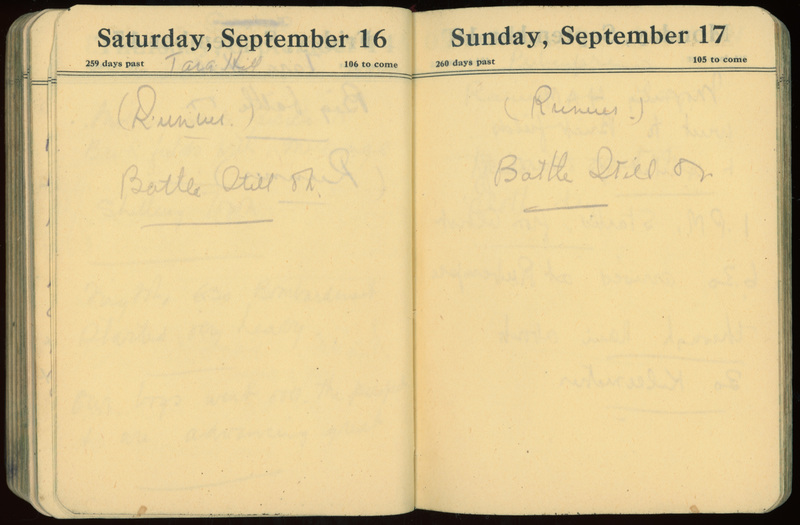 Saturday, September 16
259 days past
Tara Hill
106 to come
(Runner.)
Battle Still on.
Sunday, September 17
260 days past
105 to come
(Runner.)
Battle Still on